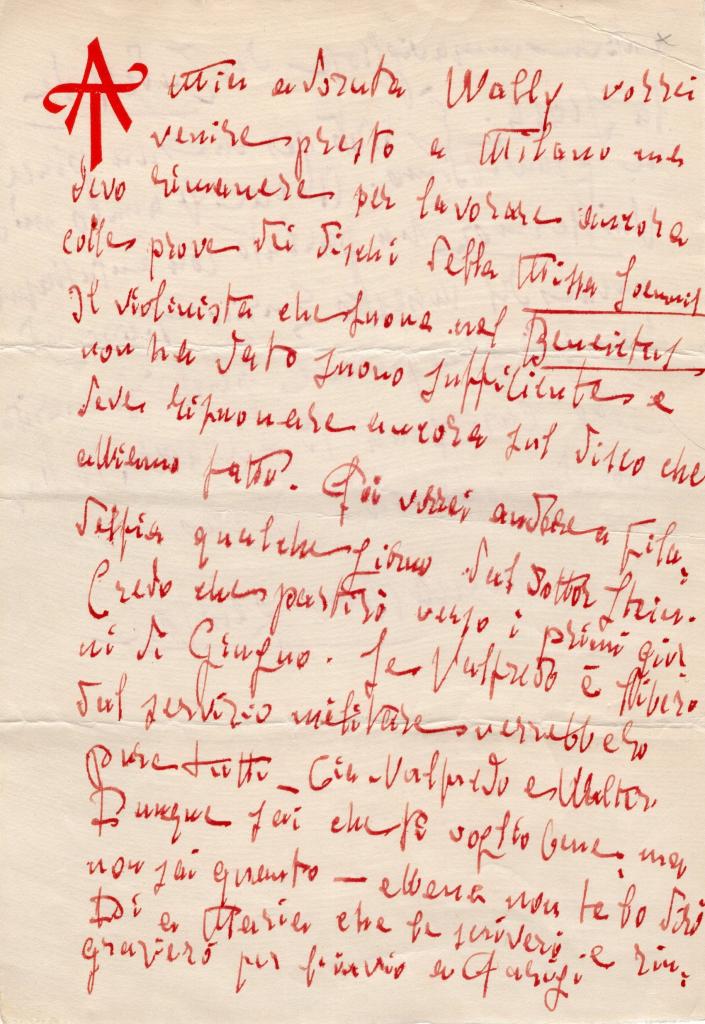 AT
Mia adorata Wally vorrei
venire presto a Milano ma
devo rimanere per lavorare ancora
colle prove dei dischi della Missa Solemnis
Il violinista che suona nel Benedictus
non ha dato suono sufficiente e
deve risuonare ancora sul disco che
abbiamo fatto. Poi vorrei andare a Fila,
delfia qualche giorno dal dottor
Credo che partirò verso i primi gior
ni di Giugno. Se Valfredo è libero
dal servizio militare verrebbero
pure tutti _ Cia Valfredo e Walter.
Dunque sai che ti voglio bene, ma
non sai quanto — ebbene non te lo dirò
Di a Maria che le scriverò e rin,
grazierò per l'invio a